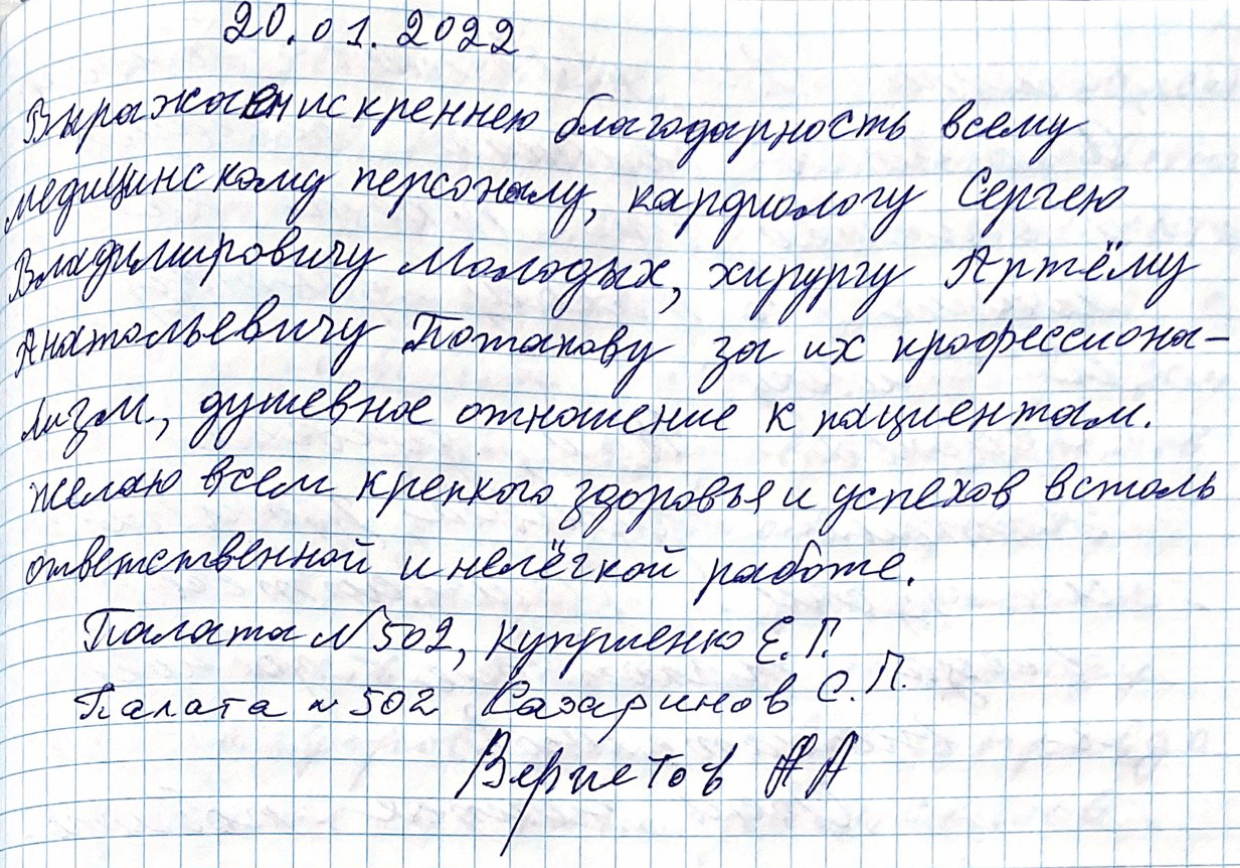 20.01.2022
Выражаем искреннею благодарность всему
медицинскому персоналу, кардиологу Сергею
Владимировичу Молодых, хирургу Артёму
Анатольевичу Потапову за их профессиона-
лизм, душевное отношение к пациентам.
Желаю всем крепкого здоровья и успехов в столь
ответственной и нелёгкой работе.
Палата №502, Куприенко Е.Г.
Палата №502 Казаринов С.П.
АА